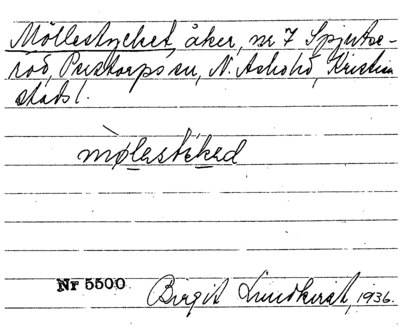 Möllestycket, åker, nr 7 Spjutse-
röd, Perstorps sn, N. Åsbohd, Kristian
stads l.
mølestẹkəd
Nr 5500
Birgit Lundkvist, 1936.